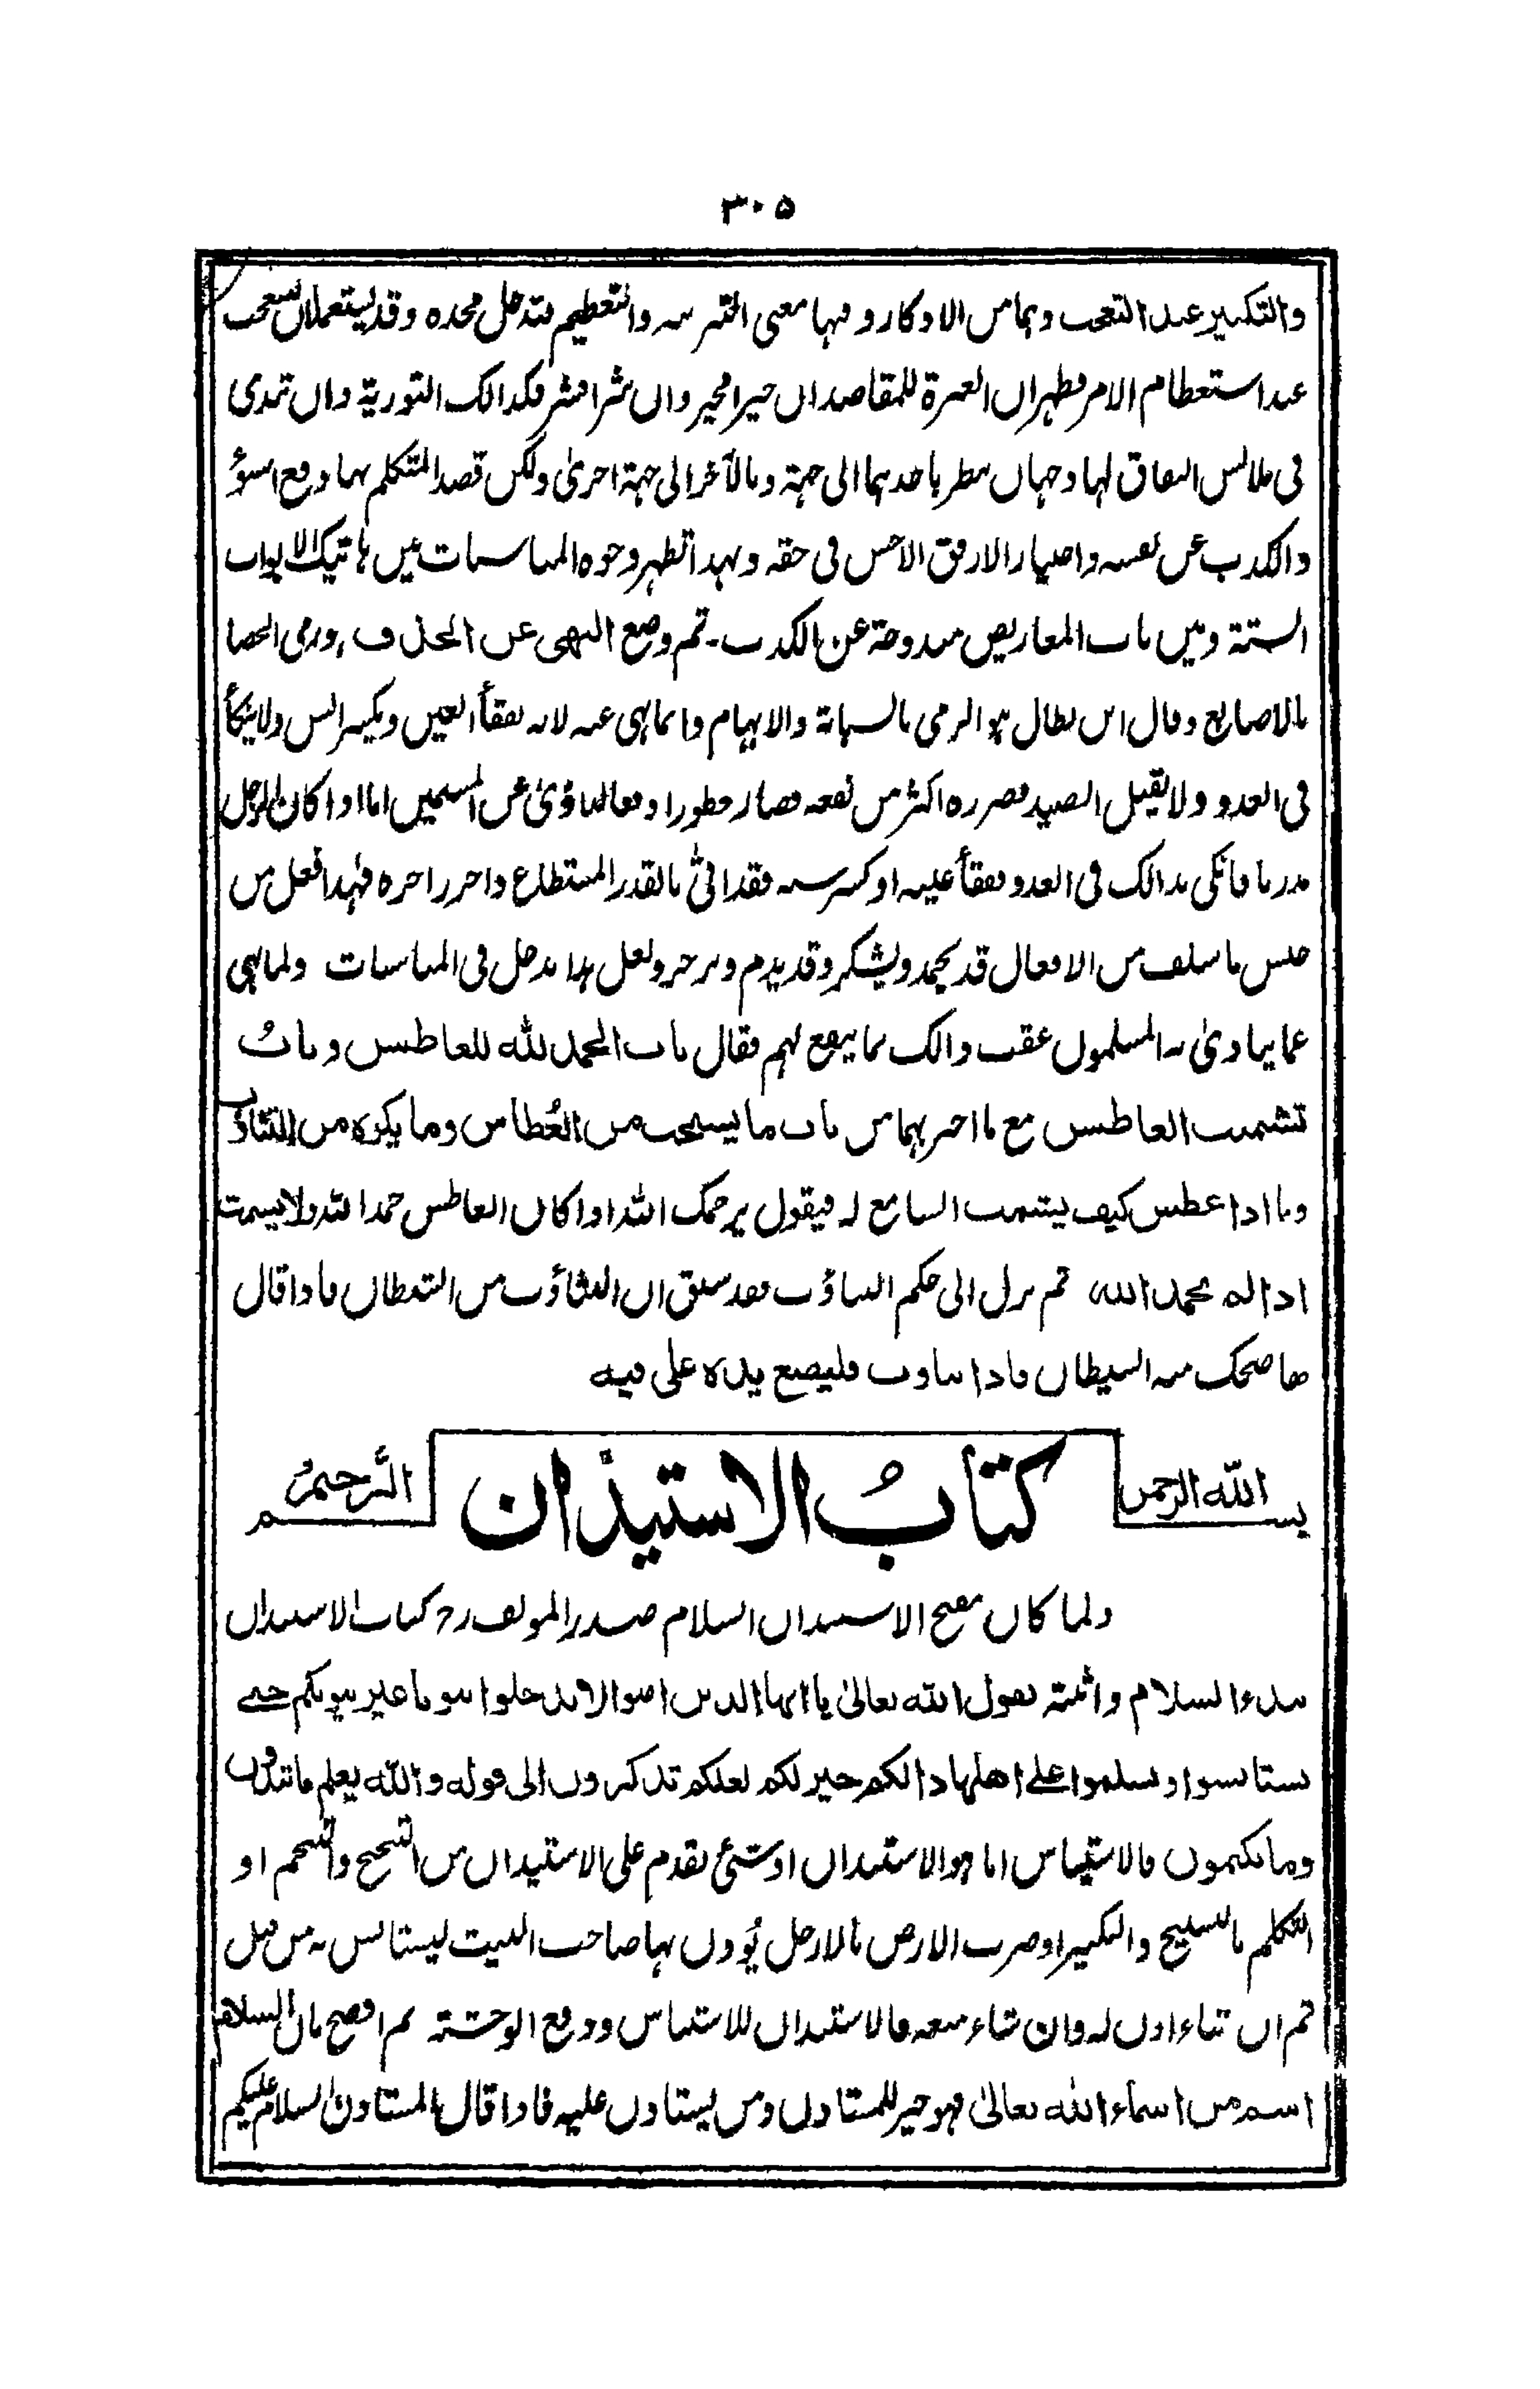 ٣٠٥
والتكبير عند التعجب وهما من الاذكار وفيها معنى التنزيه والتعظيم فتدخل تحته وقد يستعملان للتعجب
عند استعظام الامر فظهر ان العبرة للمقاصد ان خيرا فخير وان شرا فشر فكذالك التورية وان تبدى
فى ملابس النفاق لها وجهان ينظر باحدهما الى جهة وبالآخر الى جهة اخرىٰ ولكن قصد المتكلم بها دفع السوء
والكذب عن نفسه واختيار الارفق الاحسن فى حقه وبهذا تظهر وجوه المناسبات بين هاتيك الابواب
الستة وبين باب المعاريض مندوحة عن الكذب۔ ثم وضع النهى عن الخذف ورمى الحصا
بالاصابع وقال ابن بطال هو الرمى بالسبابة والابهام وانما نهى عنه لانه يفقأ العين ويكسر السن ولا ينكأ
فى العدو ولا يقتل الصيد فضرره اكثر من نفعه فصار محظورا دفعا للتأذى عن المسلمين اما اذا كان الرجل
فانكى بذالك فى العدو ففقأ عينه او كسر سنه فقد اتى بالقدر المستطاع واحرز اجره فهذا فعل من
جنس ما سلف من الافعال قد يحمد ويشكر وقد يذم ويزجر ولعل هذا يدخل فى المناسبات ولما نهى
عما يتاذىٰ به المسلمون عقب ذالك بما ينفع لهم فقال باب الحمد لله للعاطس وبابُ
تشميت العاطس مع ما اخبر بهما من باب ما يستحب من العُطاس وما يكره من التثاؤب
وما اذا عطس كيف يشمت السامع له فيقول يرحمك الله اذا كان العاطس حمد الله ولا يشمت
اذا لم يحمد الله ثم نزل الى حكم التثاؤب فقد سبق ان التثاؤب من الشيطان فاذا قال
ها ضحك منه الشيطان فاذا تثاوب فليضع يده على فيه
بسم الله الرحمن الرحيم
كتابُ الاستيذان
ولما كان مفتح الاستيذان السلام صدر المولف رح كتاب الاستيذان
ببدء السلام واثبته بقول الله تعالىٰ يا ايها الذين امنوا لا تدخلوا بيوتا غير بيوتكم حتى
تستانسوا وتسلموا على اهلها ذالكم خير لكم لعلكم تذكرون الى قوله والله يعلم ما تبدون
وما تكتمون فالاستيناس اما هو الاستيذان او شئ يقدم على الاستيذان من التنحنح والتنخم او
التكلم بالتسبيح والتكبير او ضرب الارض بالارجل يُوذن بها صاحب البيت ليستانس به من قبل
ثم ان شاء اذن له وان شاء منعه فالاستيذان للاستيناس ودفع الوحشة ثم افصح بان السلام
اسم من اسماء الله تعالىٰ فهو خير للمستاذن ومن يستاذن عليه فاذا قال المستاذن السلام عليكم